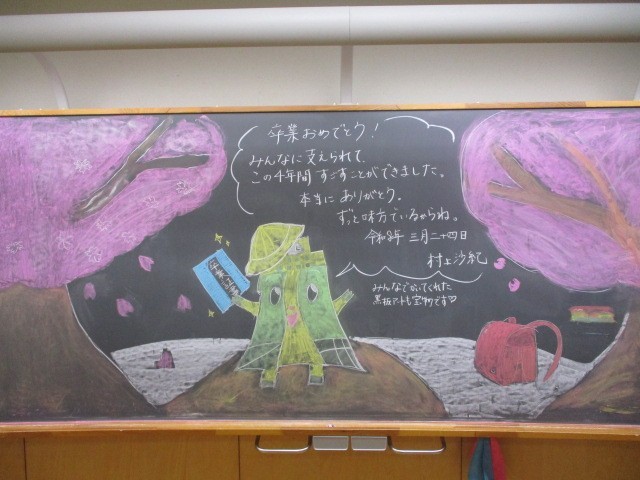 卒業おめでとう!
みんなに支えられて、
この4年間 すごすことができました。
本当に ありがとう。
ずっと味方でいるからね。
令和8年 三月二十四日
村上沙紀
みんなでかいてくれた
黒板アートも宝物です♡
卒業証書